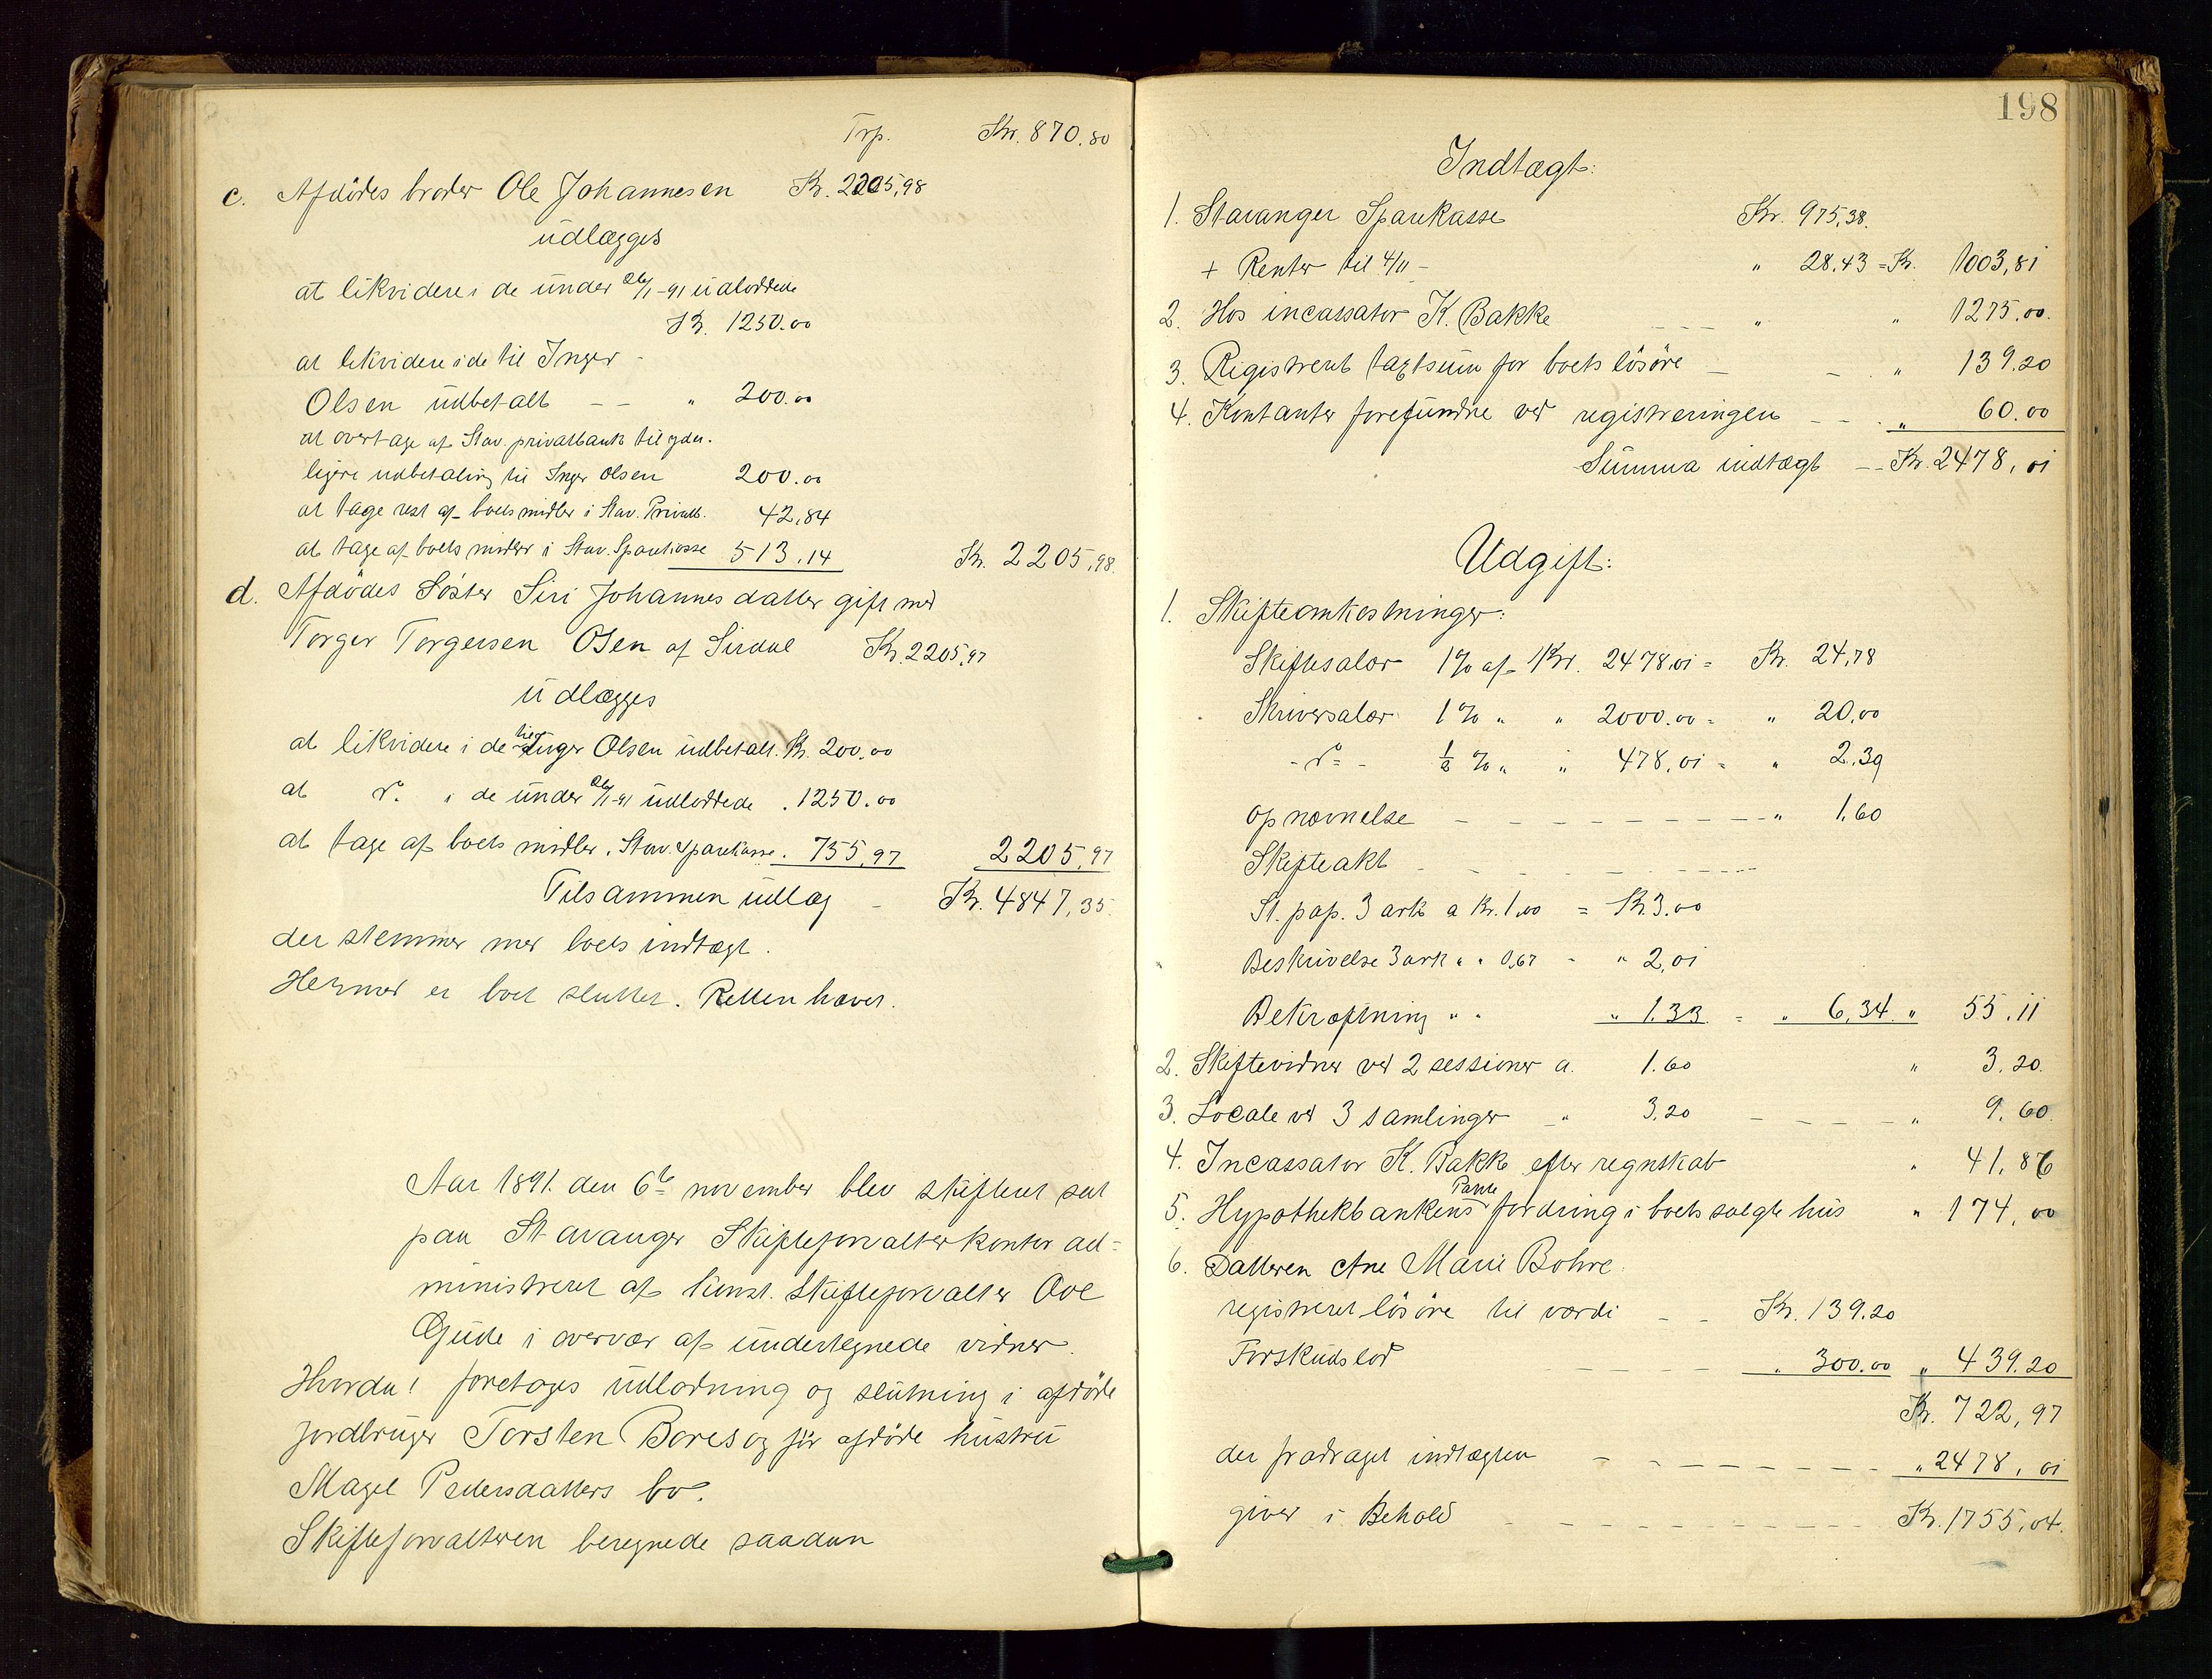 Trp. Kr. 870.80
c. Afdödes broder Ole Johannesen Kr. 2205,98
udlægges
at likvidere i de under 26/1-91 udloddede
Kr. 1250.00
at likvidere i de til Inger
Olsen udbetalt — — " 200.00
at overtage af Stav. privatbank til yder-
ligere udbetaling til Inger Olsen 200.00
at tage rest af boets midler i Stav. Privatb. 42,84
at tage af boets midler i Stav. Sparekasse 513.14 Kr. 2205,98.
d. Afdödes Söster Siri Johannesdatter gift med
Torger Torgersen Osen af Sirdal Kr. 2205,97
udlægges
at likvidere i de til Inger Olsen udbetalt. Kr. 200.00
at do. i de under 26/1-91 udloddede . 1250.00
at tage af boets midler i Stav. Sparekasse . 755,97 2205,97
Tilsammen udlæg - Kr. 4847,35
der stemmer med boets indtægt.
Hermed er boet sluttet. Retten hævet.
Aar 1891. den 6te november blev skifteret sat
paa Stavanger Skifteforvalterkontor ad-
ministreret af konst. Skifteforvalter Ove
Gude i overvær af undertegnede vidner.
Hvorda! foretoges udlodning og slutning i afdöde
jordbruger Torsten Bores og för afdöde hustru
Magel Pedersdatters bo.
Skifteforvalteren beregnede saadan
198
Indtægt:
1. Stavanger Sparekasse Kr. 975,38.
+ Renter til 4/11 - " 28.43 = Kr. 1003,81
2. Hos incassator K. Bakke - - - " " 1275.00.
3. Registreret taxtsum for boets lösöre - - . " 139.20
4. Kontanter forefundne ved registreringen - - . " 60.00
Summa indtægt — Kr. 2478,01
Udgift:
1. Skifteomkostninger:
Skiftesalær 1% af Kr. 2478,01 = Kr. 24,78
Skriversalær 1% " " 2000.00 = " 20,00
- do - ½ % " " 478,01 = " 2.39
opnævnelse - - - - - - - - - " 1,60
Skifteakt - - - - - - - -
St. pap. 3 ark a Kr. 1,00 = Kr. 3.00
Beskrivelse 3 ark " " 0,67 - " 2,01
Bekræftning " " " 1.33 = " 6,34 " 55.11
2. Skiftevidner ved 2 sessioner a. 1.60 " 3.20.
3. Locale ved 3 samlinger - " 3,20 - - - - " 9.60
4. Incassator K. Bakke efter regnskab " 41,86
5. Hypothekbankens Pante fordring i boets solgte hus " 174,00
6. Datteren Ane Marie Bohre
registreret lösöre til værdi - - Kr. 139.20
Forskudslod - - - - - " 300.00 " 439.20
Kr. 722,97
der fradraget indtægten - - - - - - - - " 2478,01
giver i Behold - - - - - - - - - - Kr. 1755,04.